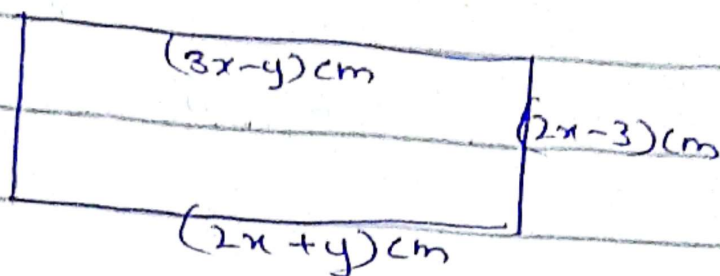 (3x-y)cm
(2x-3)cm
(2x+y)cm